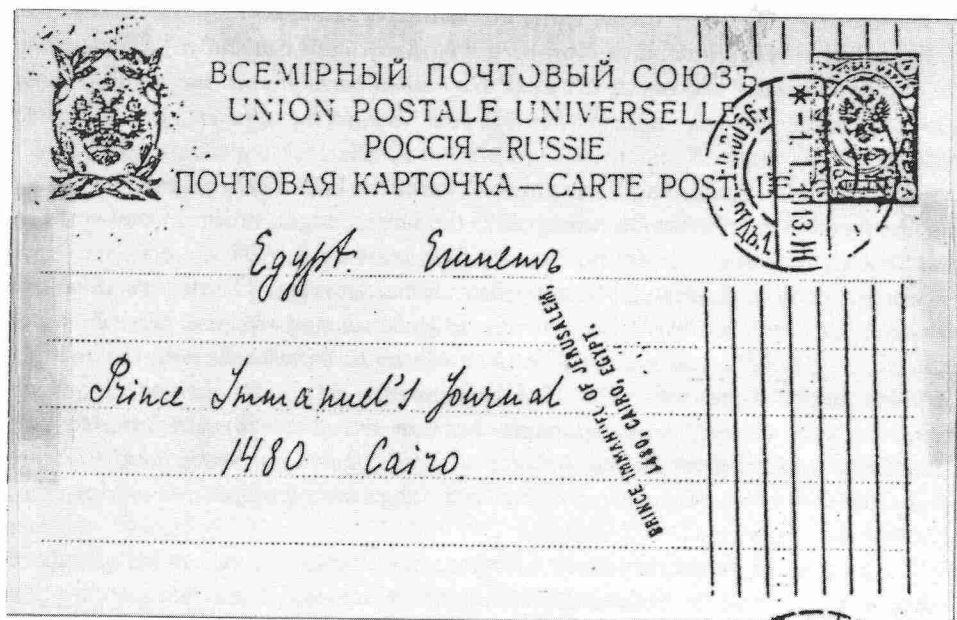 ВСЕМІРНЫЙ ПОЧТОВЫЙ СОЮЗЪ
UNION POSTALE UNIVERSELLE
РОССІЯ - RUSSIE
ПОЧТОВАЯ КАРТОЧКА - CARTE POSTALE
Egypt. Египетъ
Prince Immanuel's Journal
1480 Cairo
PRINCE IMM-H-'L OF JERUSALEM,
1480, CAIRO, EGYPT.